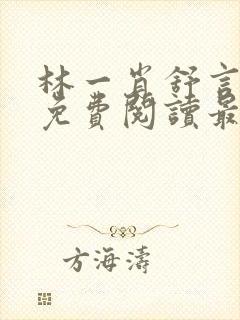 林一肖舒言
免費閱讀最
方海濤